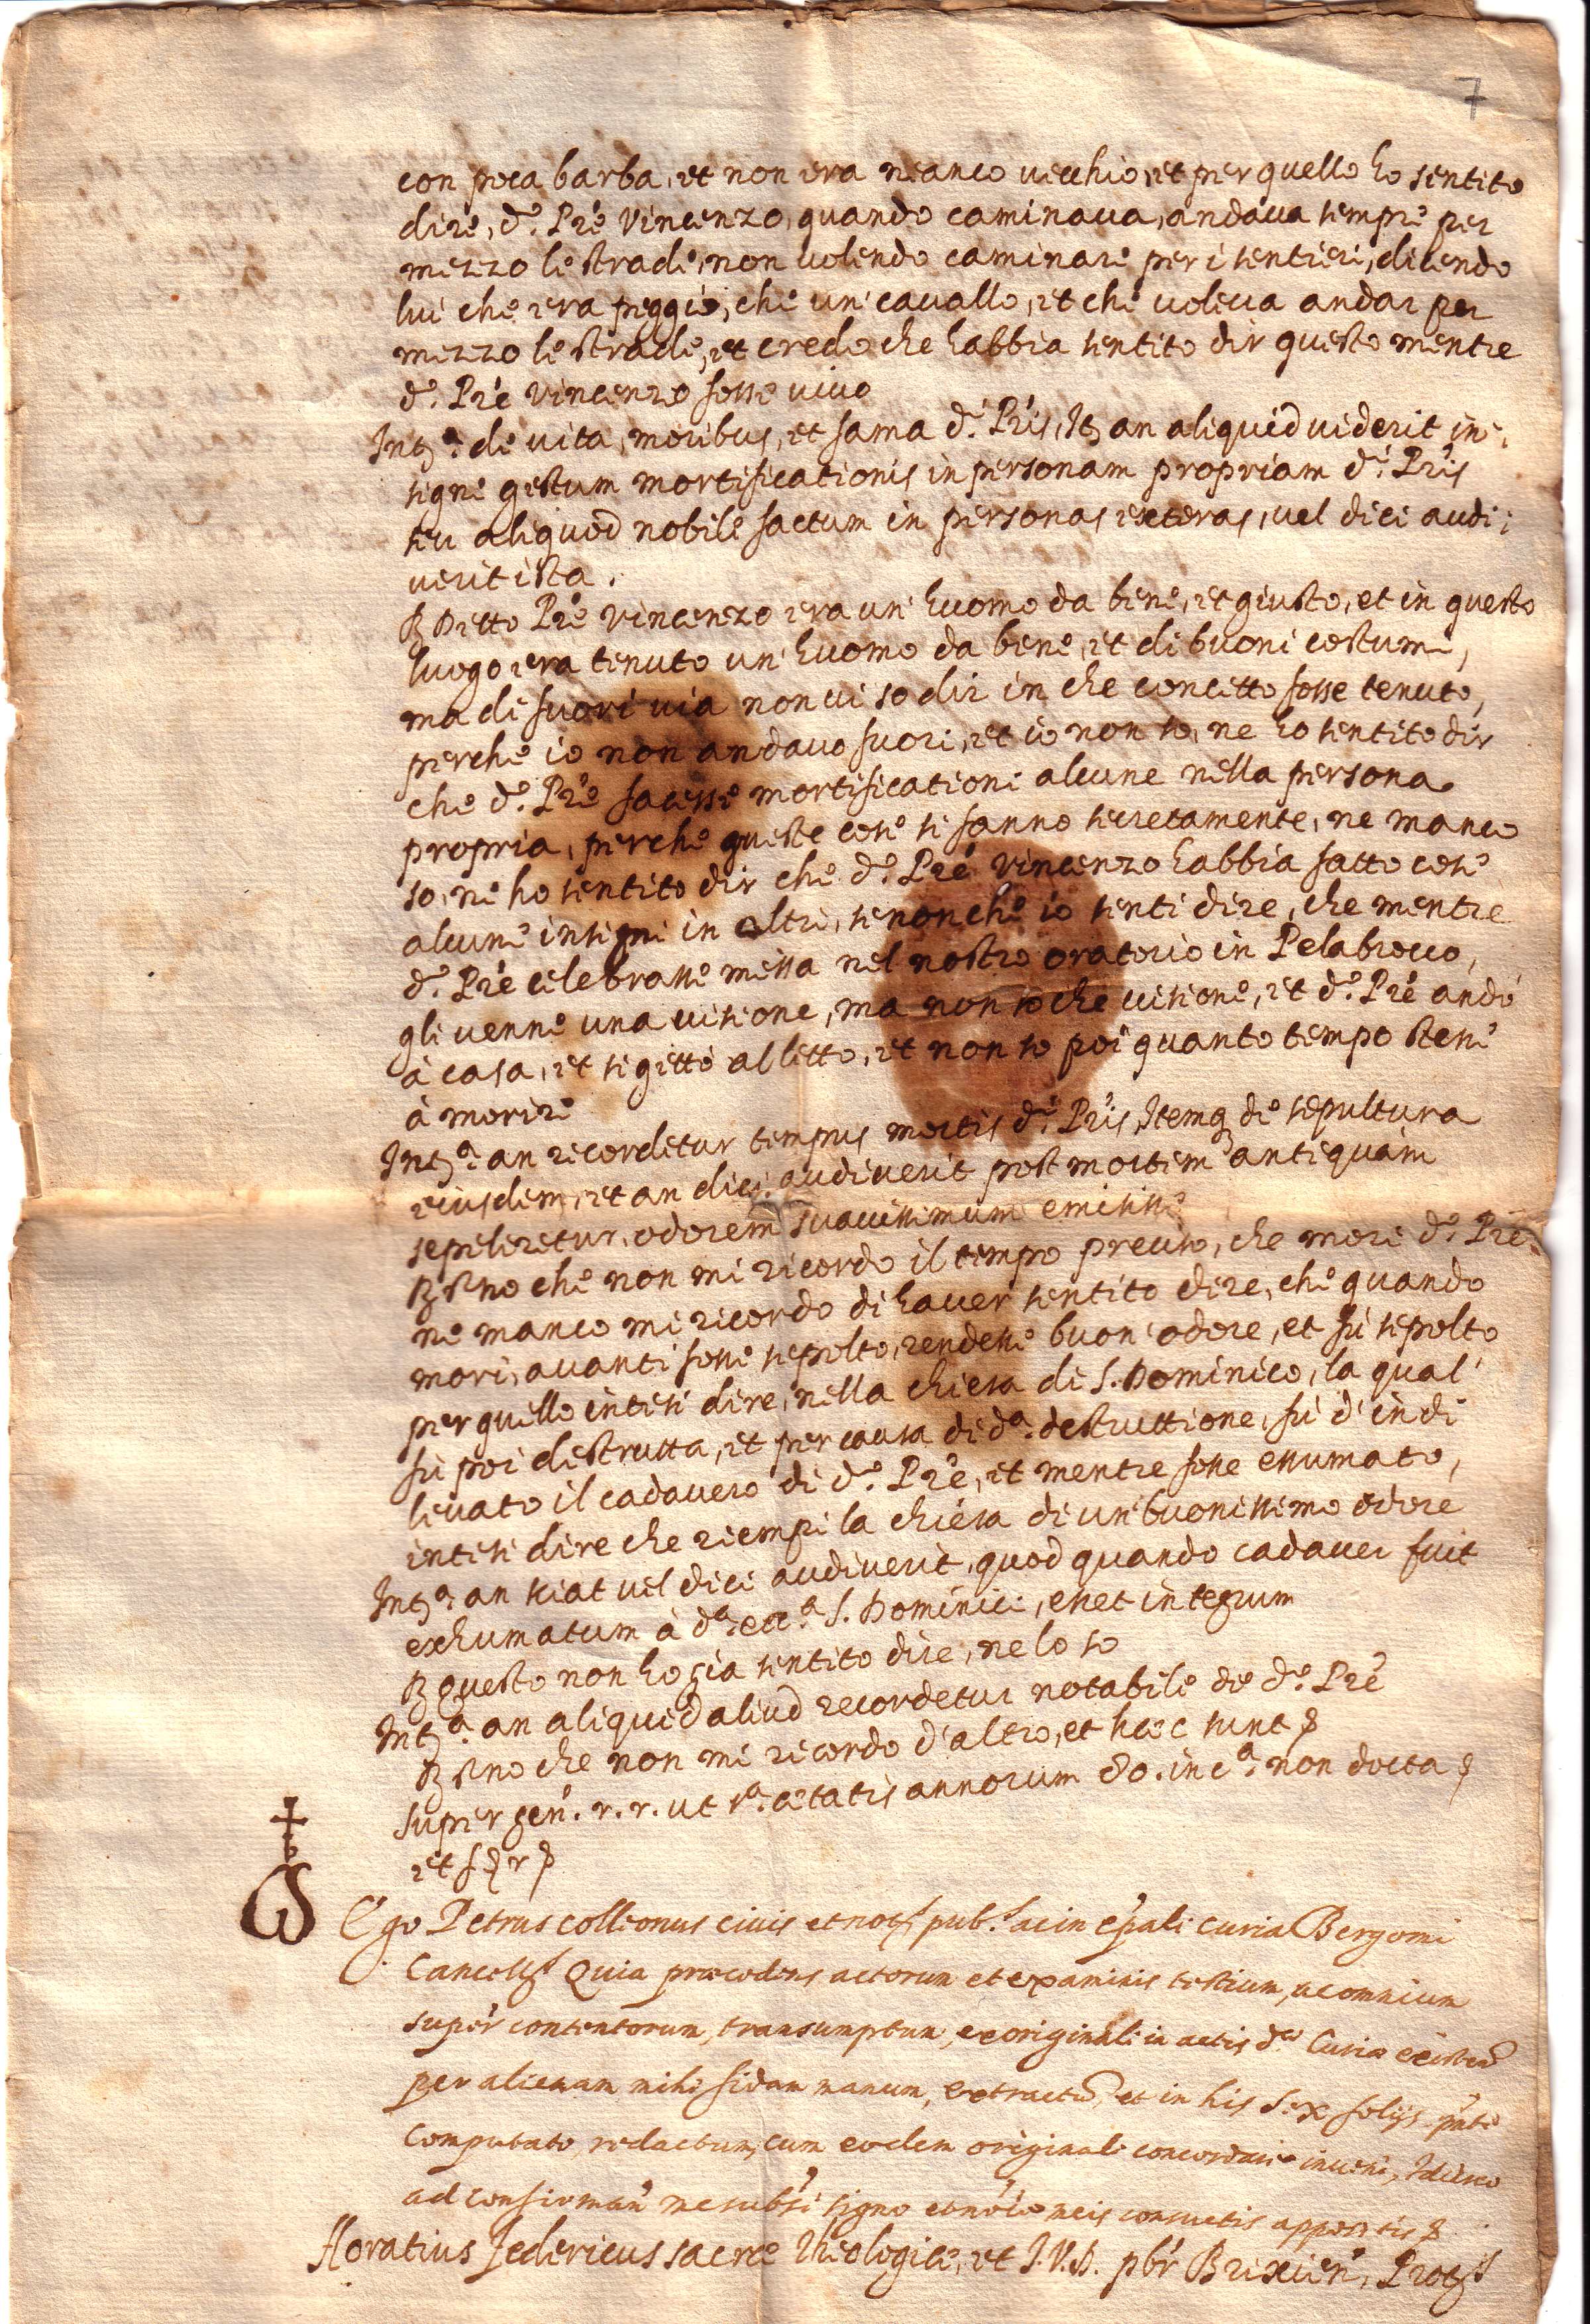 7
con poca barba, et non era neanco vecchio, et per quello ho sentito
dire, d.º Pr̃e Vincenzo, quando caminaua, andaua sempre per
mezzo le strade, non uolendo caminare per i sentieri, dicendo
lui che era peggio, che un' cauallo, et che uoleua andar per
mezzo le strade, et credo che habbia sentito dir questo mentre
d.º Pr̃e Vincenzo fosse uiuo
Int.ª de vita, moribus, et fama d.i Pr̃is, It. an aliquid viderit in:
signe gestum mortificationis in personam propriam d.i Pr̃is
seu aliquod nobile factum in personas exteras, uel dici audi:
verit ista.
R Detto Pr̃e Vincenzo era un' huomo da bene, et giusto, et in questo
luogo era tenuto un' huomo da bene, et di buoni costumi,
ma di fuori uia non ui so dir in che concetto fosse tenuto,
perche io non andauo fuori, et io non so, ne ho sentito dir
che d.º Pr̃e facesse mortificationi alcune nella persona
propria, perche queste cose si fanno secretamente, ne manco
so, ne ho sentito dir che d.º Pr̃e Vincenzo habbia fatto cose
alcune insigni in altri, senonche io senti dire, che mentre
d.º Pr̃e celebrasse messa nel nostro oratorio in Pelabrocco,
gli uenne una uisione, ma non so che uisione, et d.º Pr̃e andò
à casa, et si gettò al letto, et non so poi quanto tempo stesse
à morire
Int.ª an recordetur tempus mortis d.i Pr̃is, Itemq de sepultura
eiusdem, et an dici audiverit post mortem antequam
sepeliretur, odorem suauissimum emisisse
R S.no che non mi ricordo il tempo preciso, che morì d.º Pr̃e
ne manco mi ricordo di hauer sentito dire, che quando
morì, auanti fosse sepolto, rendesse buon' odore, et fù sepolto
per quello intesi dire, nella chiesa di S. Dominico, la qual'
fù poi destrutta, et per causa di d.ª destruttione, fù d' indi
leuato il cadauero di d.º Pr̃e, et mentre fosse essumato,
intesi dire che riempì la chiesa di un' buonissimo odore
Int.ª an sciat uel dici audiverit, quod quando cadauer fuit
exhumatum à d.ª ecc.ª S. Dominici, esset integrum
R questo non ho già sentito dire, ne lo so
Int.ª an aliquid aliud recordetur notabile de d.º Pr̃e
R S.no che non mi ricordo d'altro, et hæc sunt
super gen. r. r. ut s.ª ætatis annorum 80. in c.ª non docta
et
Ego Petrus colleonus ciuis et not.s pub.s ac in ep̃ali curia Bergomi
Cancell.s Quia præcedens actorum et examinis testium, ac omnium
super contentorum, transumptum, ex originali in actis d.æ Curiæ existen̄
per alienam mihi fidam manum, extractū, et in his sex folijs pn̄te
computato redactum, cum eodem originali concordare inueni, Idcirco
ad confirman̄ me subs̄i signo et noīe meis consuetis appositis
Horatius Federicus sacræ Theologiæ, et I.V.D. pb̄r Brixien̄, Prot.s